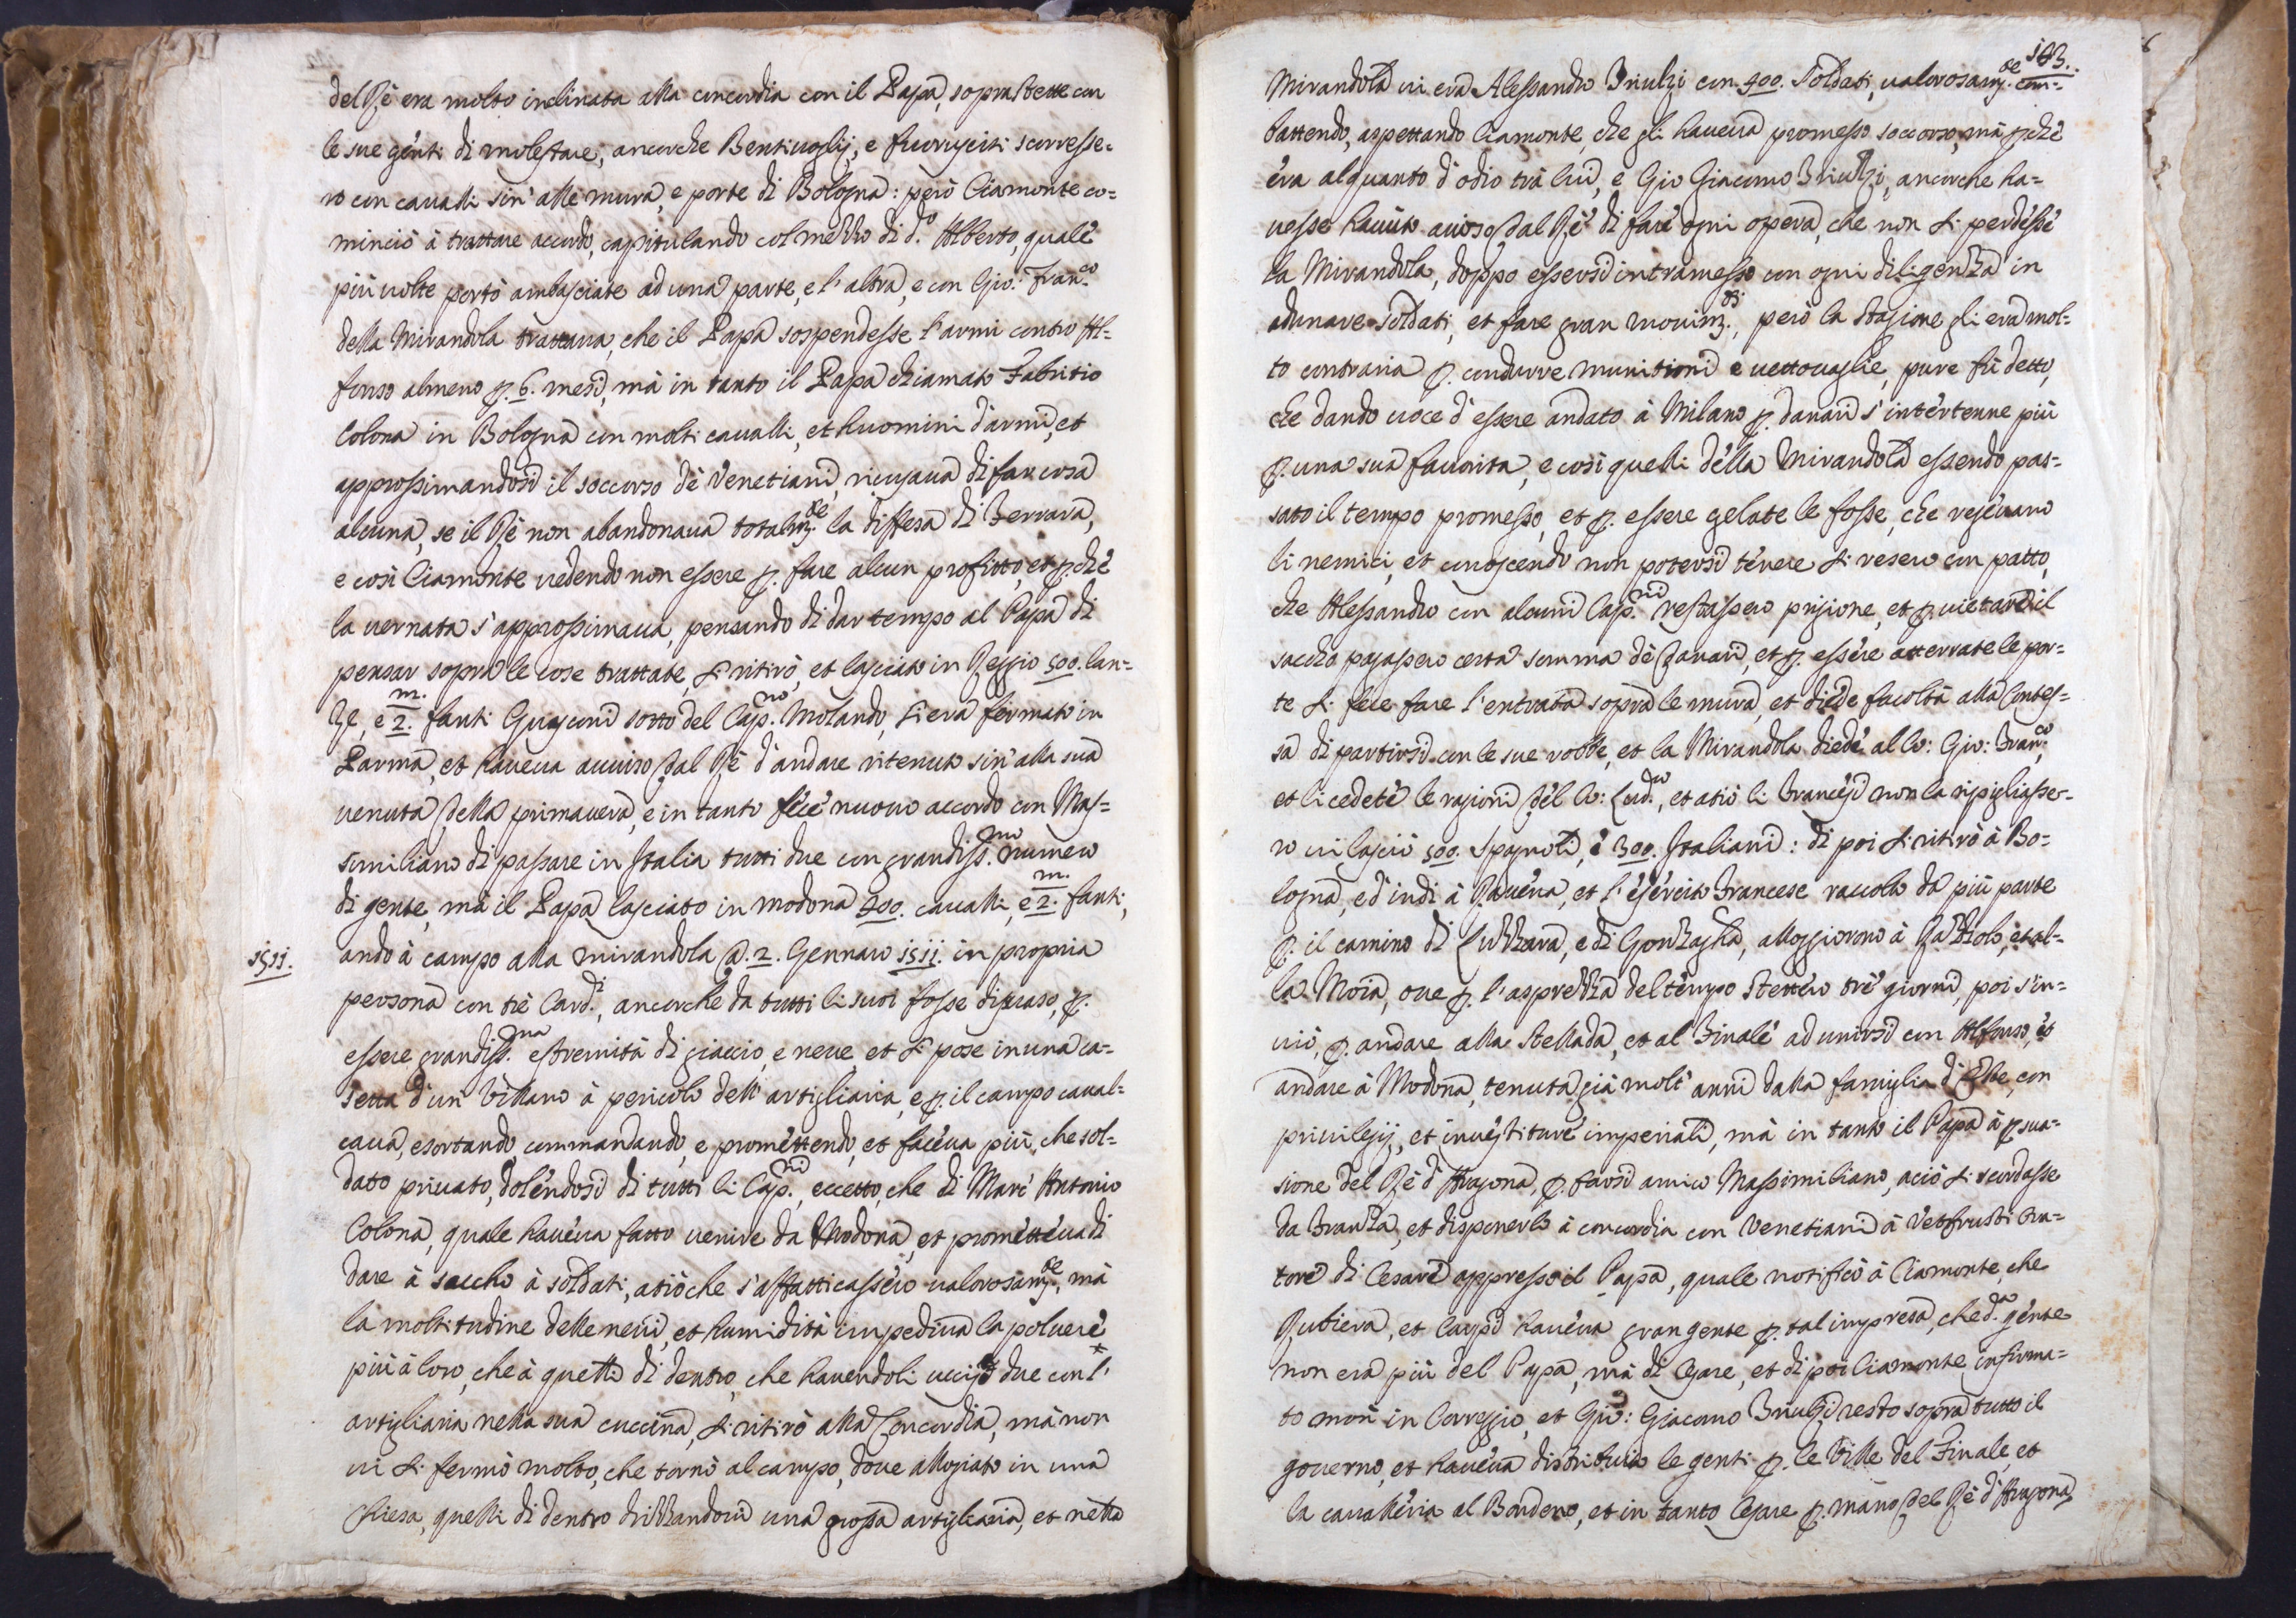 del Rè era molto inclinata alla concordia con il Papa, soprastette con
le sue genti di molestare, ancorche Bentiuoglij, e fuorusciti scorresse=
ro con caualli sin' alle mura, e porte di Bologna: però Ciamonte co=
minciò à trattare accordo, capitulando col mezzo di d.º Alberto, quale
più uolte portò ambasciate ad una parte, e l'altra, e con Gio: Fran.co
della Mirandola trattaua, che il Papa sospendesse l'armi contro Al=
fonso almeno p. 6. mesi, mà in tanto il Papa chiamato Fabritio
Colona in Bologna con molti caualli, et huomini d'armi, et
approssimandosi il soccorso dè Venetiani, ricusaua di far cosa
alcuna, se il Rè non abandonaua totalm.te la diffesa di Ferrara,
e così Ciamonte uedendo non essere p. fare alcun profitto, et p.che
la uernata s'approssimaua, pensando di dar tempo al Papa di
pensar sopra le cose trattate, si ritirò, et lasciato in Reggio 500. lan=
ze, e 2.m. fanti Guasconi sotto del Cap.no Molando, si era fermato in
Parma, et haueua auuiso dal Rè d'andare ritenuto sin' alla sua
uenuta della primauera, e in tanto fece nuouo accordo con Mas=
similiano di passare in Italia tutti due con grandiss.mo numero
di gente, mà il Papa lasciato in Modona 400. caualli, e 2.m. fanti,
1511.
andò à campo alla Mirandola à 2. Gennaro 1511. in propria
persona con trè Card.li, ancorche da tutti li suoi fosse disuaso, p.
essere grandiss.ma estremità di giaccio, e neue, et si pose in una ca=
setta d'un Villano à pericolo dell' artigliaria, e p. il campo caual=
caua, esortando, commandando, e promettendo, et faceua più, che sol=
dato priuato, dolendosi di tutti li Cap.ni, eccetto, che di Marc' Antonio
Colona, quale haueua fatto uenire da Modona, et prometteua di
dare à saccho à soldati, atiò che s'affatticassero ualorosam.te, mà
la moltitudine delle neui, et humidità impediua la poluere
più à loro, che à quelli di dentro, che hauendoli uccisi due con l'
artigliaria nella sua cuccina, si ritirò alla Concordia, mà non
ui si fermò molto, che tornò al campo, doue allogiato in una
Chiesa, quelli di dentro drizzandoui una grossa artigliaria, et nella
Mirandola ui era Alessandro Triulzi con 400. Soldati, ualorosam.te com=
battendo, aspettando Ciamonte, che gli haueua promesso soccorso, mà p.che
era alquanto d'odio trà lui, e Gio Giacomo Triulzi, ancorche ha=
uesse hauuto auiso dal Rè di fare ogni opera, che non si perdesse
la Mirandola, doppo essersi intramesso con ogni diligenza in
adunare Soldati, et fare gran mouim.ti, però la stagione gli era mol=
to contraria p. condurre munitioni e uettouaglie, pure fù detto,
che dando uoce d'essere andato à Milano p. danari s'intertenne più
p. una sua fauorita, e così quelli della Mirandola essendo pas=
sato il tempo promesso, et p. essere gelate le fosse, che regeuano
li nemici, et conoscendo non potersi tenere si resero con patto,
che Alessandro con alcuni Cap.ni restassero prigione, et p. uietare il
saccho pagassero certa somma dè danari, et p. essere atterrate le por=
te si fece fare l'entrata sopra le mura, et diede facoltà alla Contes=
sa di partirsi con le sue robbe, et la Mirandola diede al Co: Gio: Fran.co
et li cedetè le ragioni del Co: Lud.co, et atiò li Francesi non la ripigliasse=
ro ui lasciò 500. Spagnoli, e 300. Italiani: di poi si ritirò à Bo=
logna, e d'indi à Rauena, et l'esercito Francese raccolto da più parte
p. il camino di Luzzara, e di Gonzagha, alloggiorono à Razzolo, et al=
la Moia, oue p. l'asprezza del tempo stettero trè giorni, poi s'in=
uiò, p. andare alla Stellada, et al Finale ad unirsi con Alfonso, et
andare à Modona, tenuta già molt' anni dalla famiglia d'Este, con
priuilegij, et inuestiture imperiali, mà in tanto il Papa à p.sua=
sione del Rè d'Aragona, p. farsi amico Massimiliano, aciò si scordasse
da Franza, et disponerlo à concordia con Venetiani à Vetfrusti Ora=
tore di Cesare appresso il Papa, quale notificò à Ciamonte, che
Rubiera, et Carpi haueua gran gente p. tal impresa, che d.a gente
non era più del Papa, mà di Cesare, et di poi Ciamonte infirma=
to morì in Correggio, et Gio: Giacomo Triulzi restò sopra tutto il
gouerno, et haueua distribuito le genti p. le Ville del Finale, et
la caualleria al Bondeno, et in tanto Cesare p. mano del Rè d'Aragona,